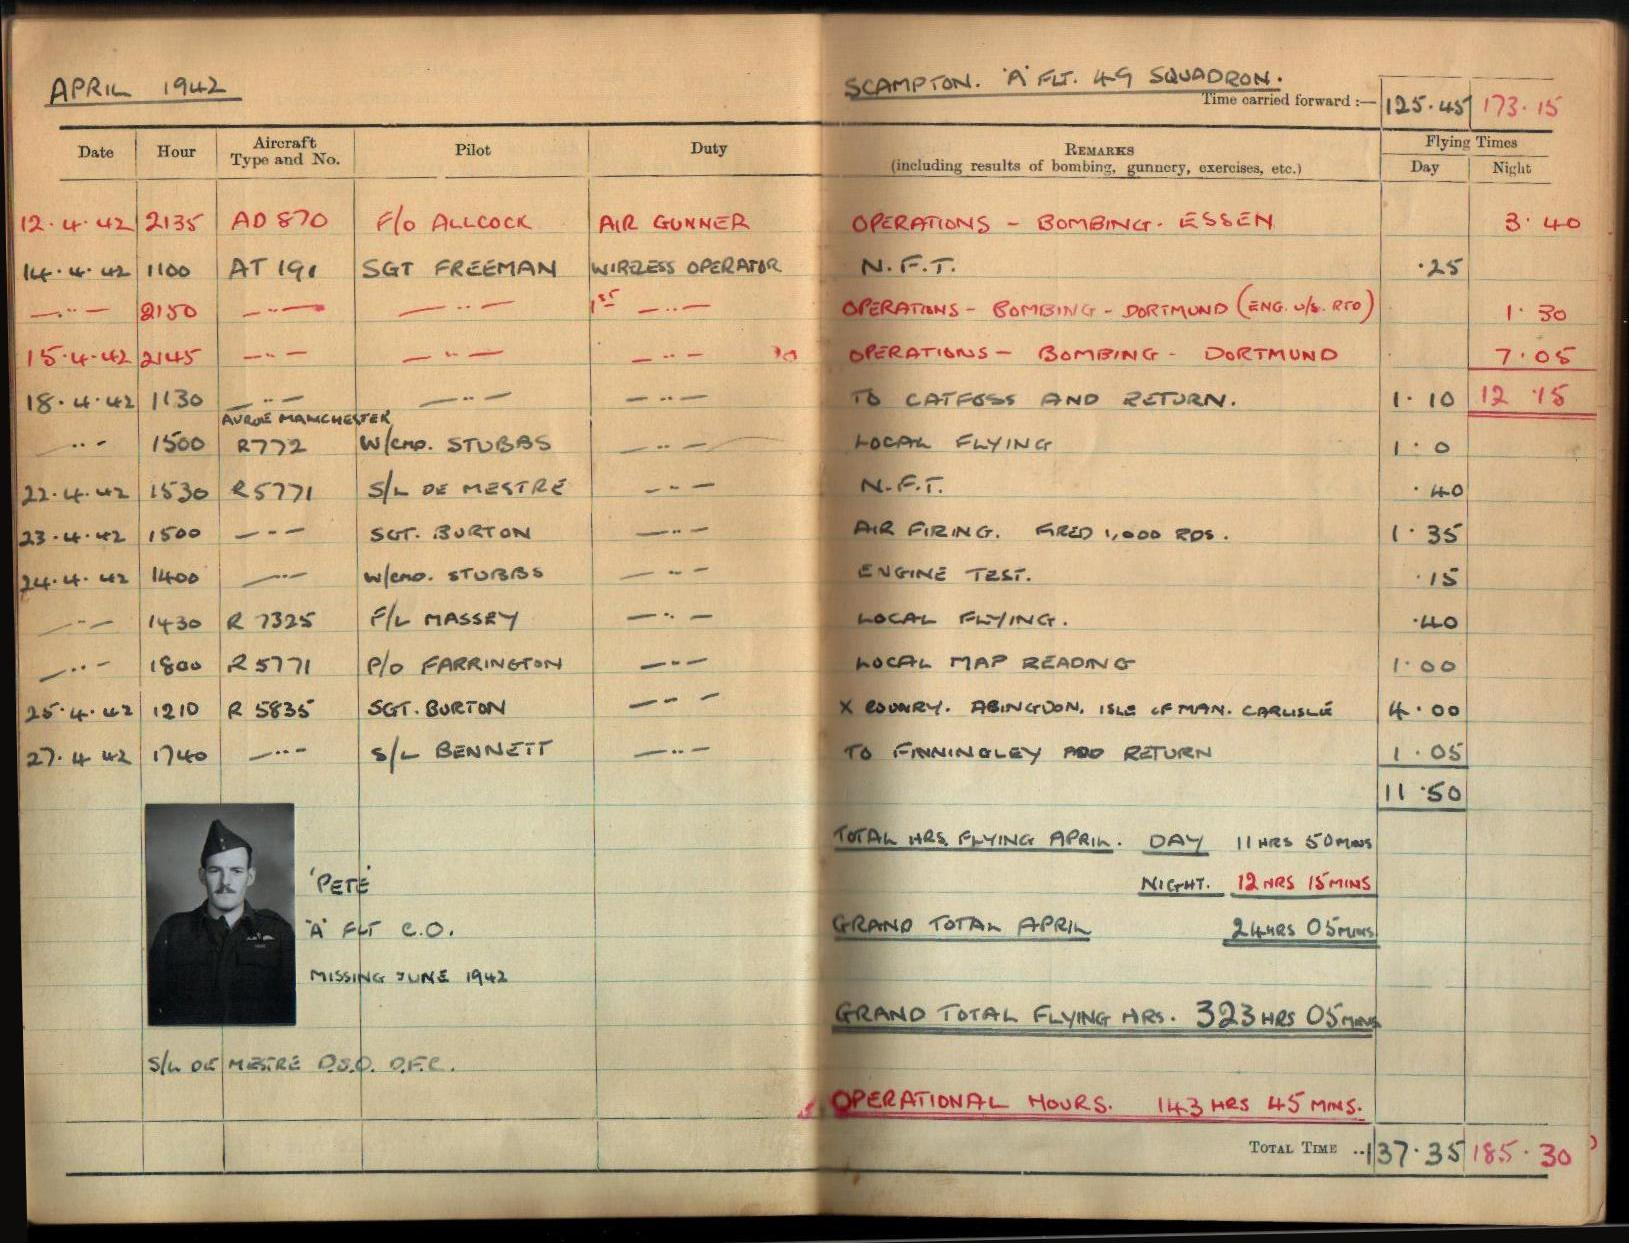 APRIL 1942
SCAMPTON. 'A' FLT. 49 SQUADRON.
Time carried forward :— 125.45 173.15
Date Hour Aircraft Type and No. Pilot Duty REMARKS (including results of bombing, gunnery, exercises, etc.) Flying Times Day Night
12.4.42 2135 AD 870 F/O ALLCOCK AIR GUNNER OPERATIONS - BOMBING. ESSEN 3.40
14.4.42 1100 AT 191 SGT FREEMAN WIRELESS OPERATOR N.F.T. .25
—··— 2150 —··— —··— 1ST —··— OPERATIONS - BOMBING - DORTMUND (ENG. U/S. RTD) 1.30
15.4.42 2145 —··— —··— —··— OPERATIONS - BOMBING - DORTMUND 7.05
18.4.42 1130 —··— —··— —··— TO CATFOSS AND RETURN. 1.10 12.15
AVROE MANCHESTER
—··— 1500 R772 W/CMD. STUBBS —··— LOCAL FLYING 1.0
22.4.42 1530 R5771 S/L DE MESTRE —··— N.F.T. .40
23.4.42 1500 —··— SGT. BURTON —··— AIR FIRING. FIRED 1,000 RDS. 1.35
24.4.42 1400 —··— W/CMD. STUBBS —··— ENGINE TEST. .15
—··— 1430 R 7325 F/L MASSEY —··— LOCAL FLYING. .40
—··— 1800 R 5771 P/O FARRINGTON —··— LOCAL MAP READING 1.00
25.4.42 1210 R 5835 SGT. BURTON —··— X COUNRY. ABINGDON. ISLE OF MAN. CARLISLE 4.00
27.4 42 1740 —··— S/L BENNETT —··— TO FINNINGLEY AND RETURN 1.05
11.50
TOTAL HRS. FLYING APRIL. DAY 11 HRS 50 MINS
NIGHT. 12 HRS 15 MINS
'PETE'
'A' FLT C.O.
MISSING JUNE 1942
GRAND TOTAL APRIL 24 HRS 05 MINS
GRAND TOTAL FLYING HRS. 323 HRS 05 MINS
S/L DE MESTRE D.S.O. D.F.C.
OPERATIONAL HOURS. 143 HRS 45 MINS.
TOTAL TIME .. 137.35 185.30